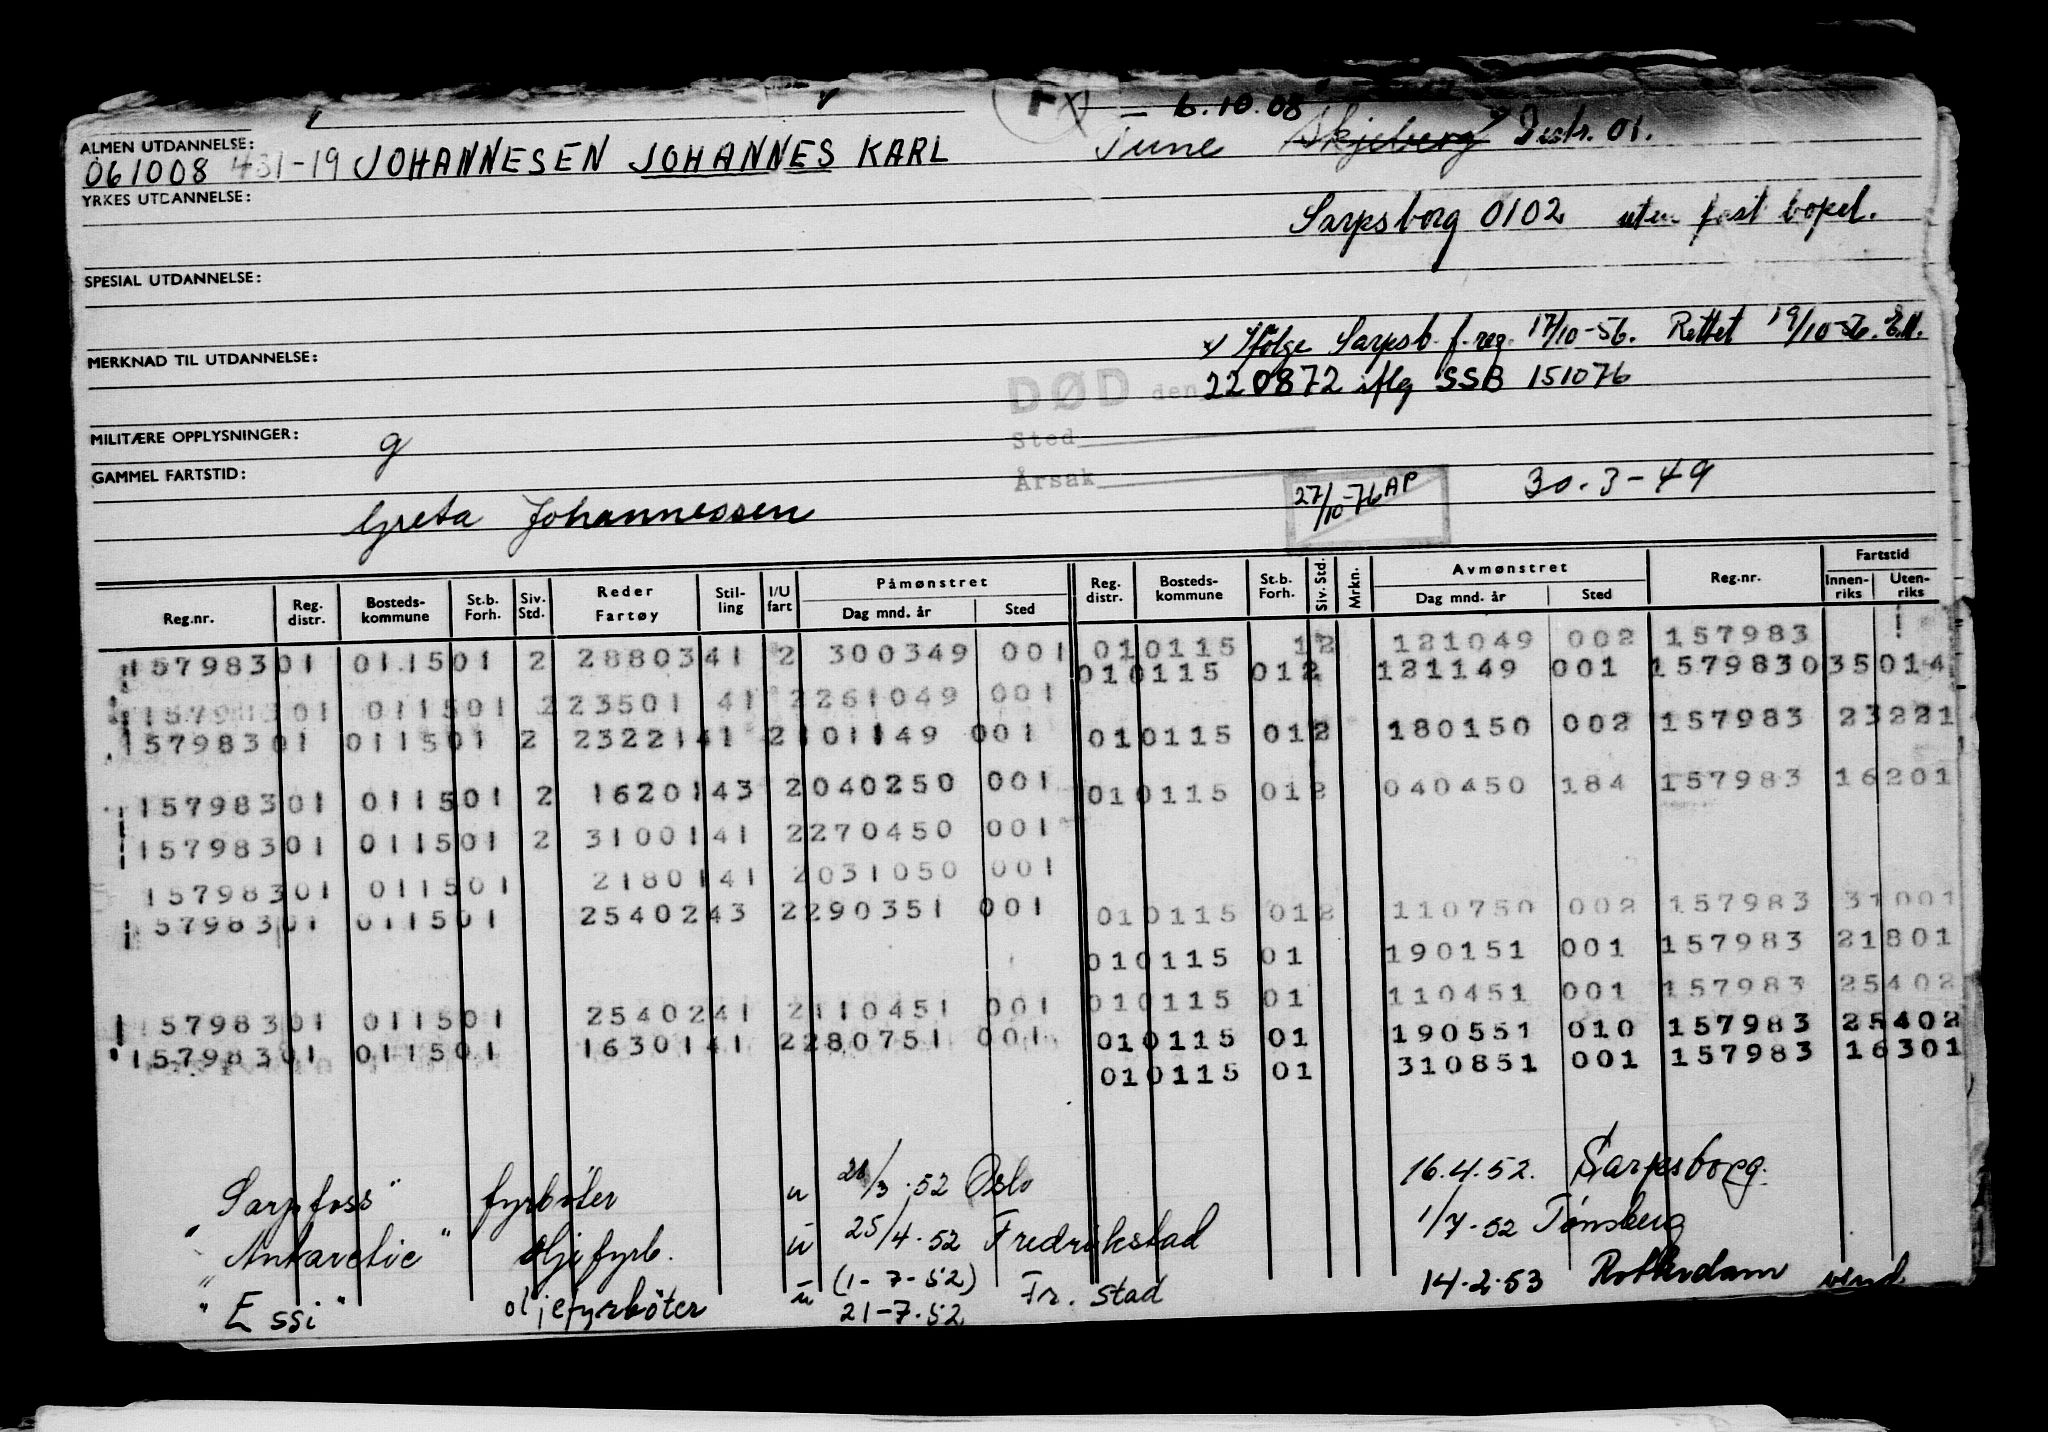 FX — 6.10.08
ALMEN UTDANNELSE:
061008 431-19 JOHANNESEN JOHANNES KARL Tune Skjeberg Distr. 01.
YRKES UTDANNELSE:
Sarpsborg 0102 uten fast bopel.
SPESIAL UTDANNELSE:
x Ifölge Sarpsb. f.reg. 17/10-56. Rettet 19/10-56. E.M.
MERKNAD TIL UTDANNELSE:
DØD den 220872 iflg SSB 151076
MILITÆRE OPPLYSNINGER: g
Sted
GAMMEL FARTSTID:
Årsak 27/10-76 AP 30.3-49
Greta Johannessen
Reg.nr. Reg. distr. Bosteds- kommune St.b. Forh. Siv. Std. Reder Fartøy Stil- ling I/U fart Påmønstret Dag mnd. år Sted Reg. distr. Bosteds- kommune St.b. Forh. Siv. Std. Mrkn. Avmønstret Dag mnd. år Sted Reg.nr. Fartstid Innen- riks Uten- riks
157983 01 0115 01 2 28803 41 2 300349 001 01 0115 1 2 121049 002 157983
01 0115 01 2 121149 001 157983 035014
157983 01 0115 01 2 23501 41 2 261049 001
157983 01 0115 01 2 23221 41 2 101149 001 01 0115 01 2 180150 002 157983 23221
157983 01 0115 01 2 16201 43 2 040250 001 01 0115 01 2 040450 184 157983 16201
157983 01 0115 01 2 31001 41 2 270450 001
157983 01 0115 01 21801 41 2 031050 001
57983 01 0115 01 25402 43 2 290351 001 01 0115 01 2 110750 002 157983 31001
01 0115 01 190151 001 157983 21801
157983 01 0115 01 25402 41 2 110451 001 01 0115 01 110451 001 157983 25402
157983 01 0115 01 16301 41 2 280751 001 01 0115 01 190551 010 157983 25402
01 0115 01 310851 001 157983 16301
"Sarpfoss" fyrböter u 21/3.52 Oslo 16.4.52. Sarpsborg.
"Antarctic" oljefyrb. u 25/4.52 Fredrikstad 1/7-52 Tønsberg
"Essi" oljefyrböter u (1-7-52) 21-7.52 Fr. stad 14-2.53 Rotterdam vend